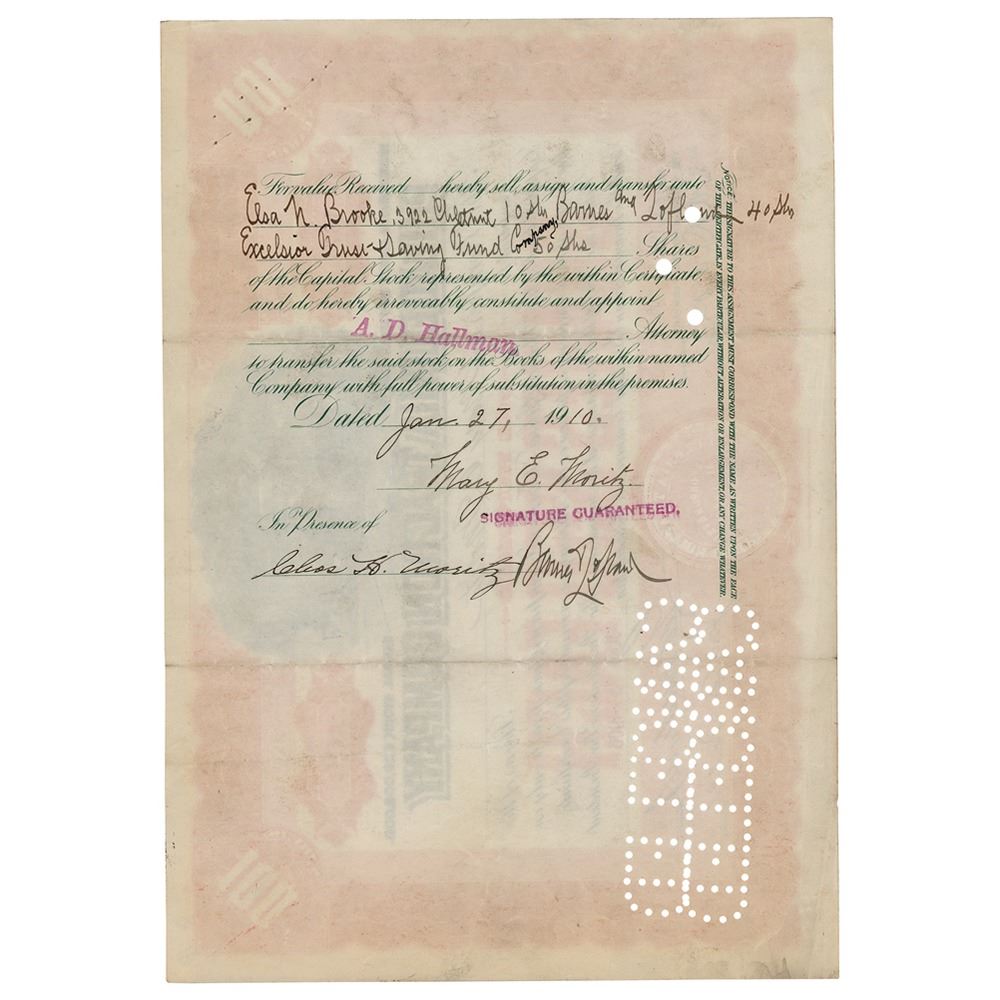 For value Received hereby sell, assign and transfer unto
Elsa N. Brooke, 3922 Chestnut 10 Shs, Barnes and Lofland 40 Shs
Excelsior Trust & Saving Fund Company, 50 Shs Shares
of the Capital Stock represented by the within Certificate,
and do hereby irrevocably constitute and appoint
A. D. Hallman Attorney
to transfer the said stock on the Books of the within named
Company with full power of substitution in the premises.
Dated Jan. 27, 1910.
Mary E. Moritz.
SIGNATURE GUARANTEED,
In Presence of
Chas H. Moritz Barnes & Lofland
NOTICE. THE SIGNATURE TO THIS ASSIGNMENT MUST CORRESPOND WITH THE NAME AS WRITTEN UPON THE FACE
OF THE CERTIFICATE, IN EVERY PARTICULAR, WITHOUT ALTERATION OR ENLARGEMENT, OR ANY CHANGE WHATEVER.
100
100